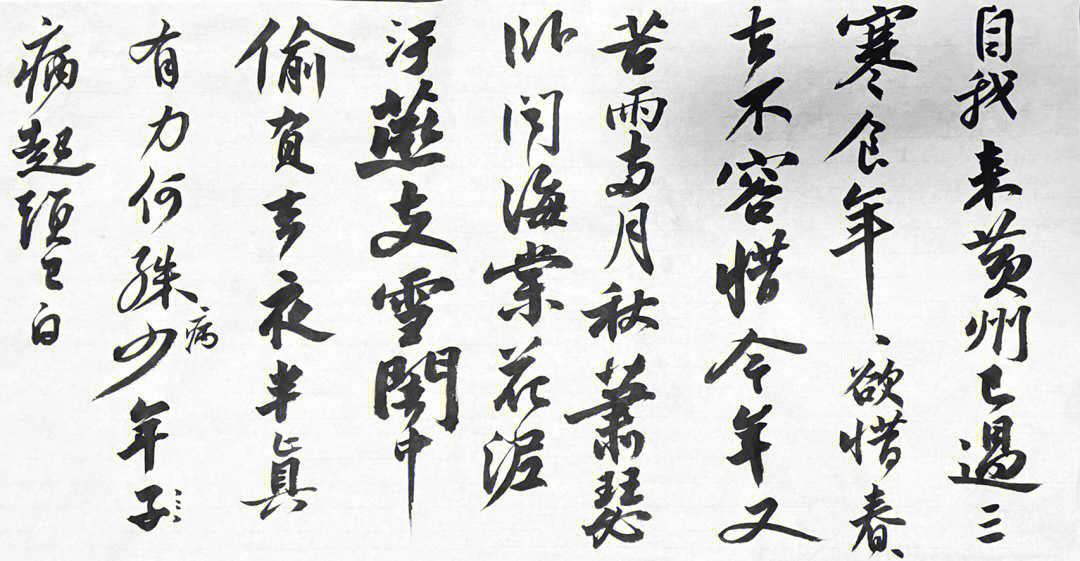 自我来黄州已過三
寒食年々欲惜春
去不容惜今年又
苦雨兩月秋蕭瑟
卧聞海棠花泥
汙燕支雪闇中
偷負去夜半真
有力何殊病少年子
病起頭已白